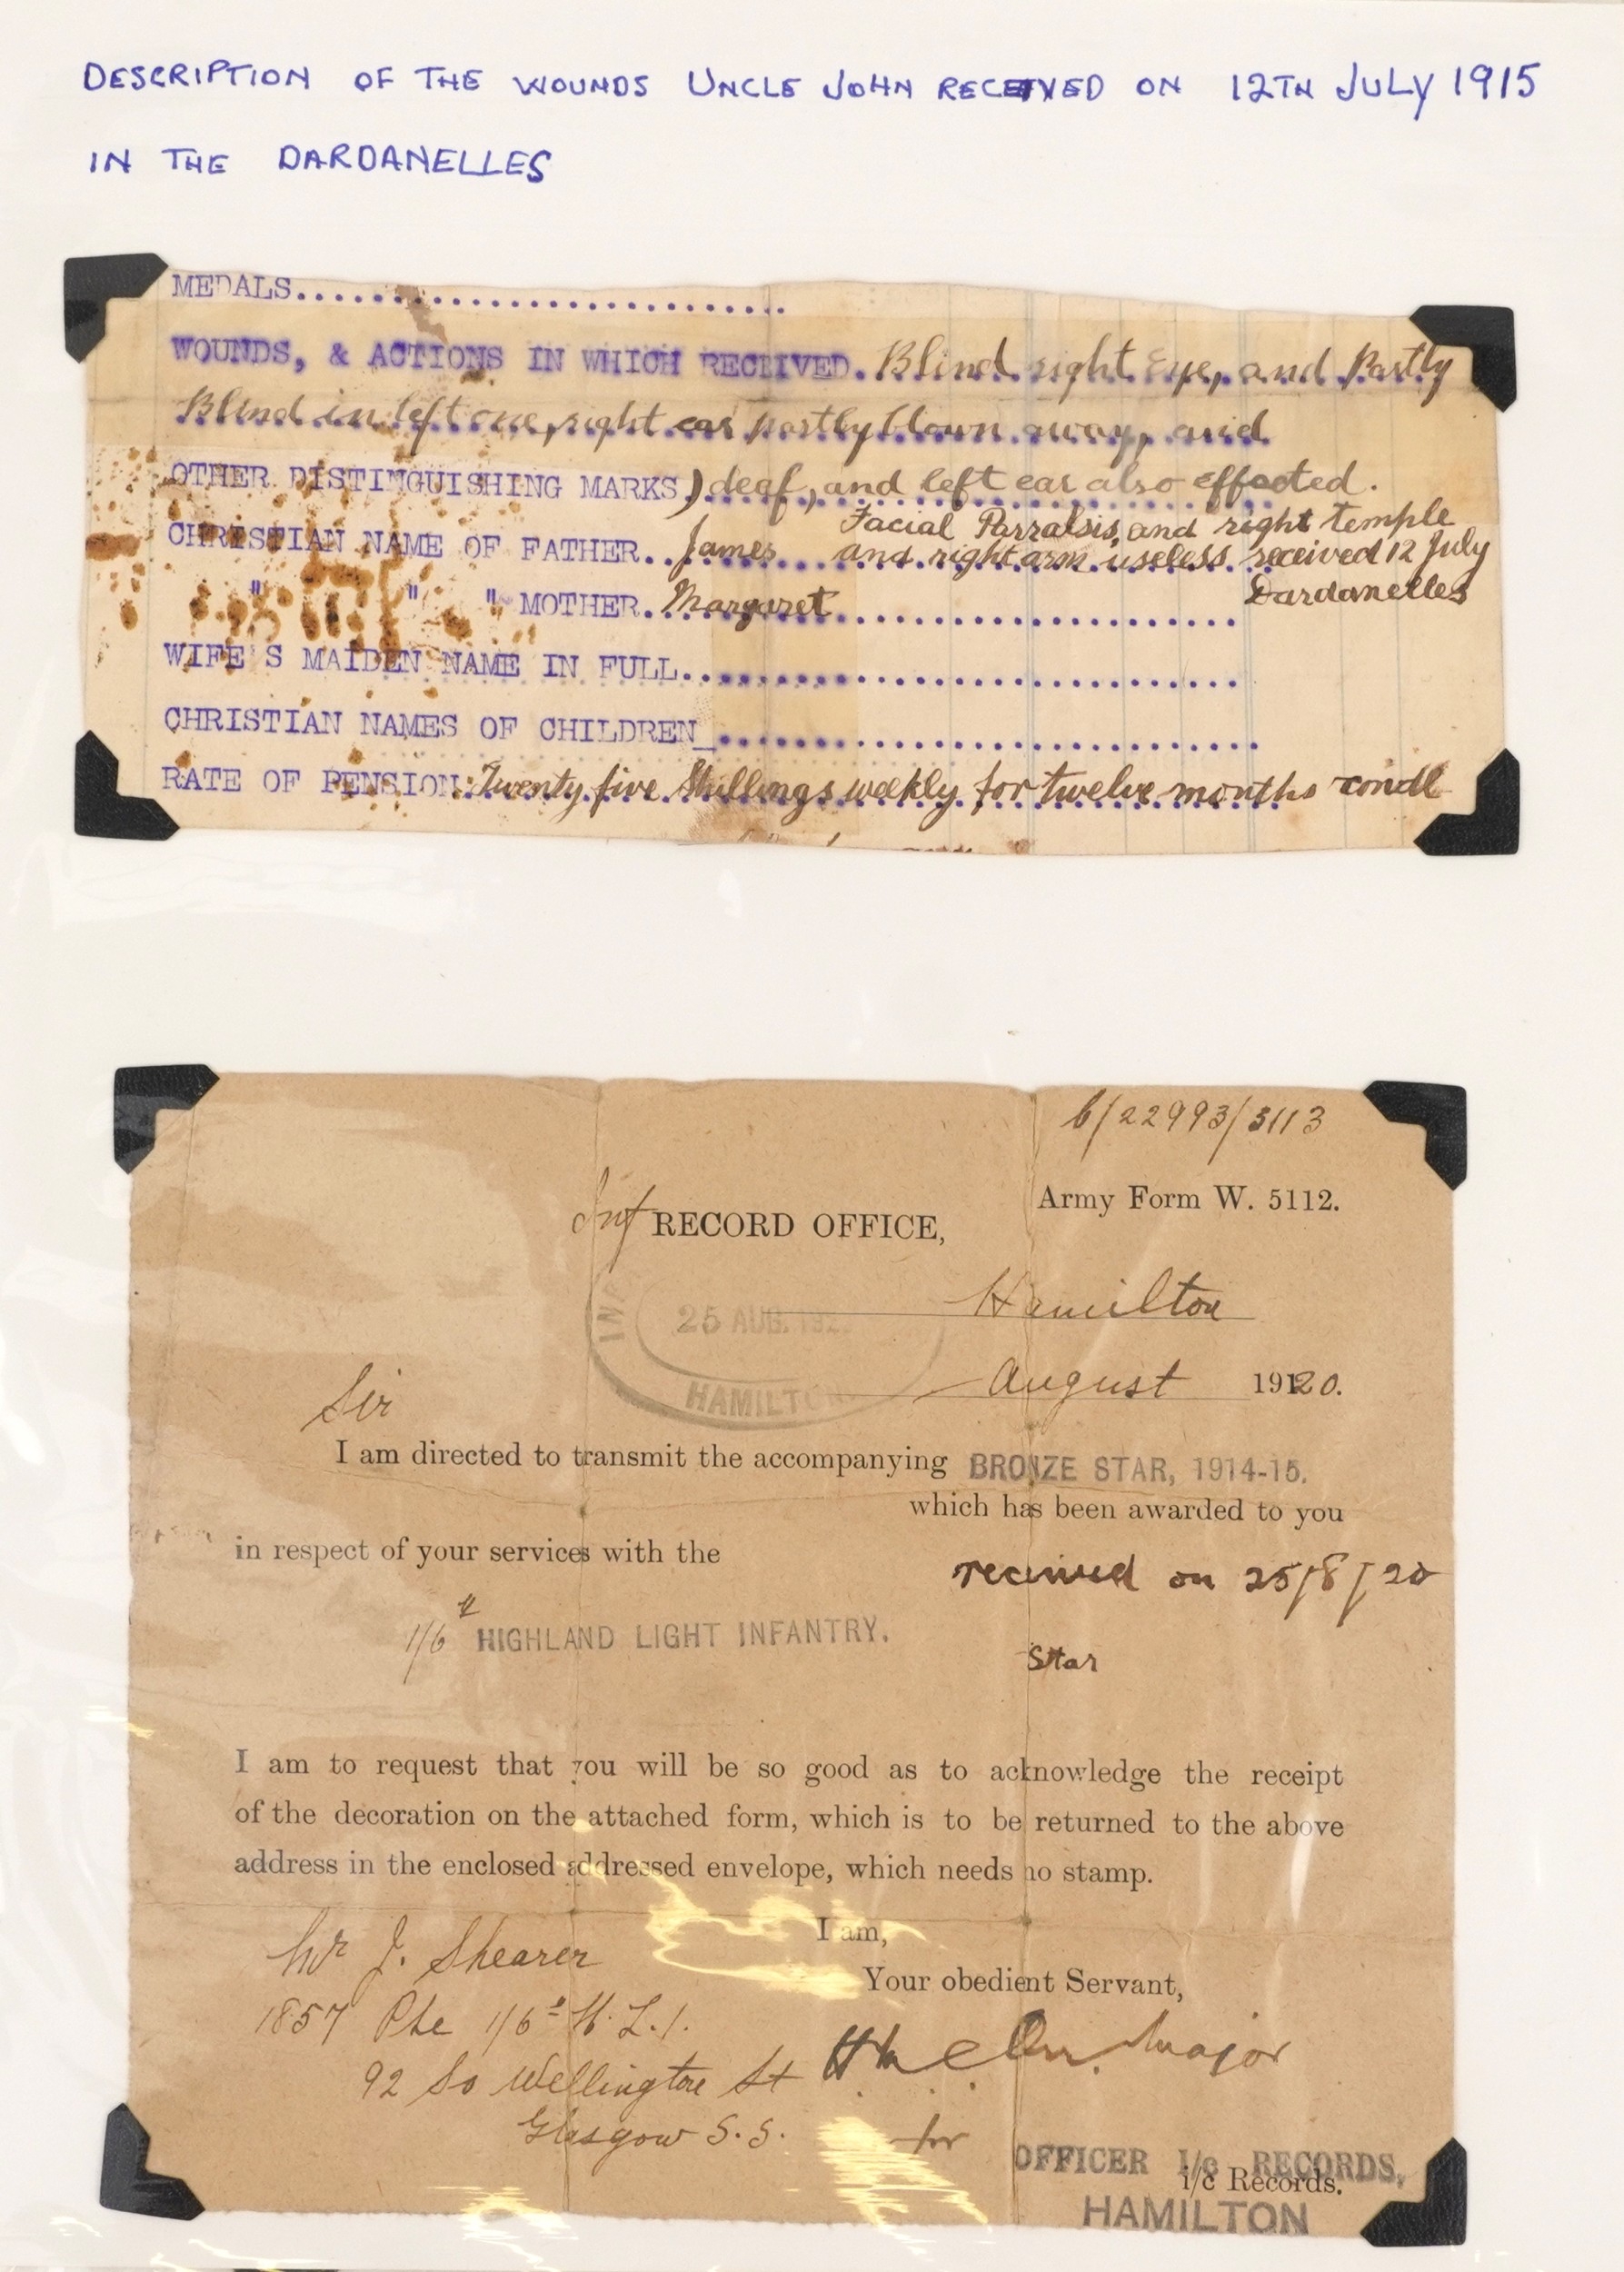 DESCRIPTION OF THE WOUNDS UNCLE JOHN RECEIVED ON 12TH JULY 1915
IN THE DARDANELLES
MEDALS..............................
WOUNDS, & ACTIONS IN WHICH RECEIVED. Blind right Eye, and Partly
Blind in left one, right ear partly blown away, and
OTHER DISTINGUISHING MARKS) deaf, and left ear also effected.
Facial Parralsis, and right temple
CHRISTIAN NAME OF FATHER.. James and right arm useless received 12 July
" " " MOTHER.. Margaret Dardanelles
WIFE'S MAIDEN NAME IN FULL..............................
CHRISTIAN NAMES OF CHILDREN_..............................
RATE OF PENSION: Twenty five Shillings weekly for twelve months condl
6/22993/3113
Army Form W. 5112.
Inf RECORD OFFICE,
Hamilton
25 AUG.
HAMILTON
August 1920.
Sir
I am directed to transmit the accompanying BRONZE STAR, 1914-15.
which has been awarded to you
in respect of your services with the
received on 25/8/20
1/6th HIGHLAND LIGHT INFANTRY.
Star
I am to request that you will be so good as to acknowledge the receipt
of the decoration on the attached form, which is to be returned to the above
address in the enclosed addressed envelope, which needs no stamp.
I am,
Mr J. Shearer
Your obedient Servant,
1857 Pte 1/6th H.L.I.
Major
92 So Wellington St
Glasgow S.S.
for
OFFICER I/c RECORDS,
i/c Records.
HAMILTON